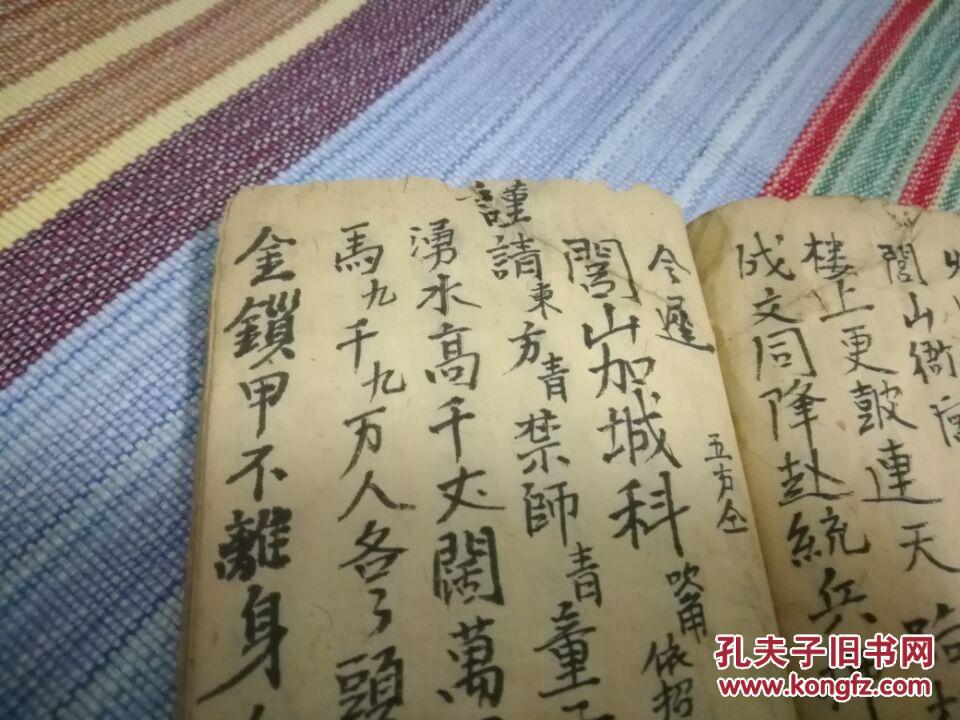 閭山衙
楼上更鼓連天
成文同降赴統兵
五方仝
閭山加城科
吹角依招
謹請東方青禁師青童
湧水高千丈闊萬
馬九千九万人各了頭
金鎖甲不離身
孔夫子旧书网
www.kongfz.com